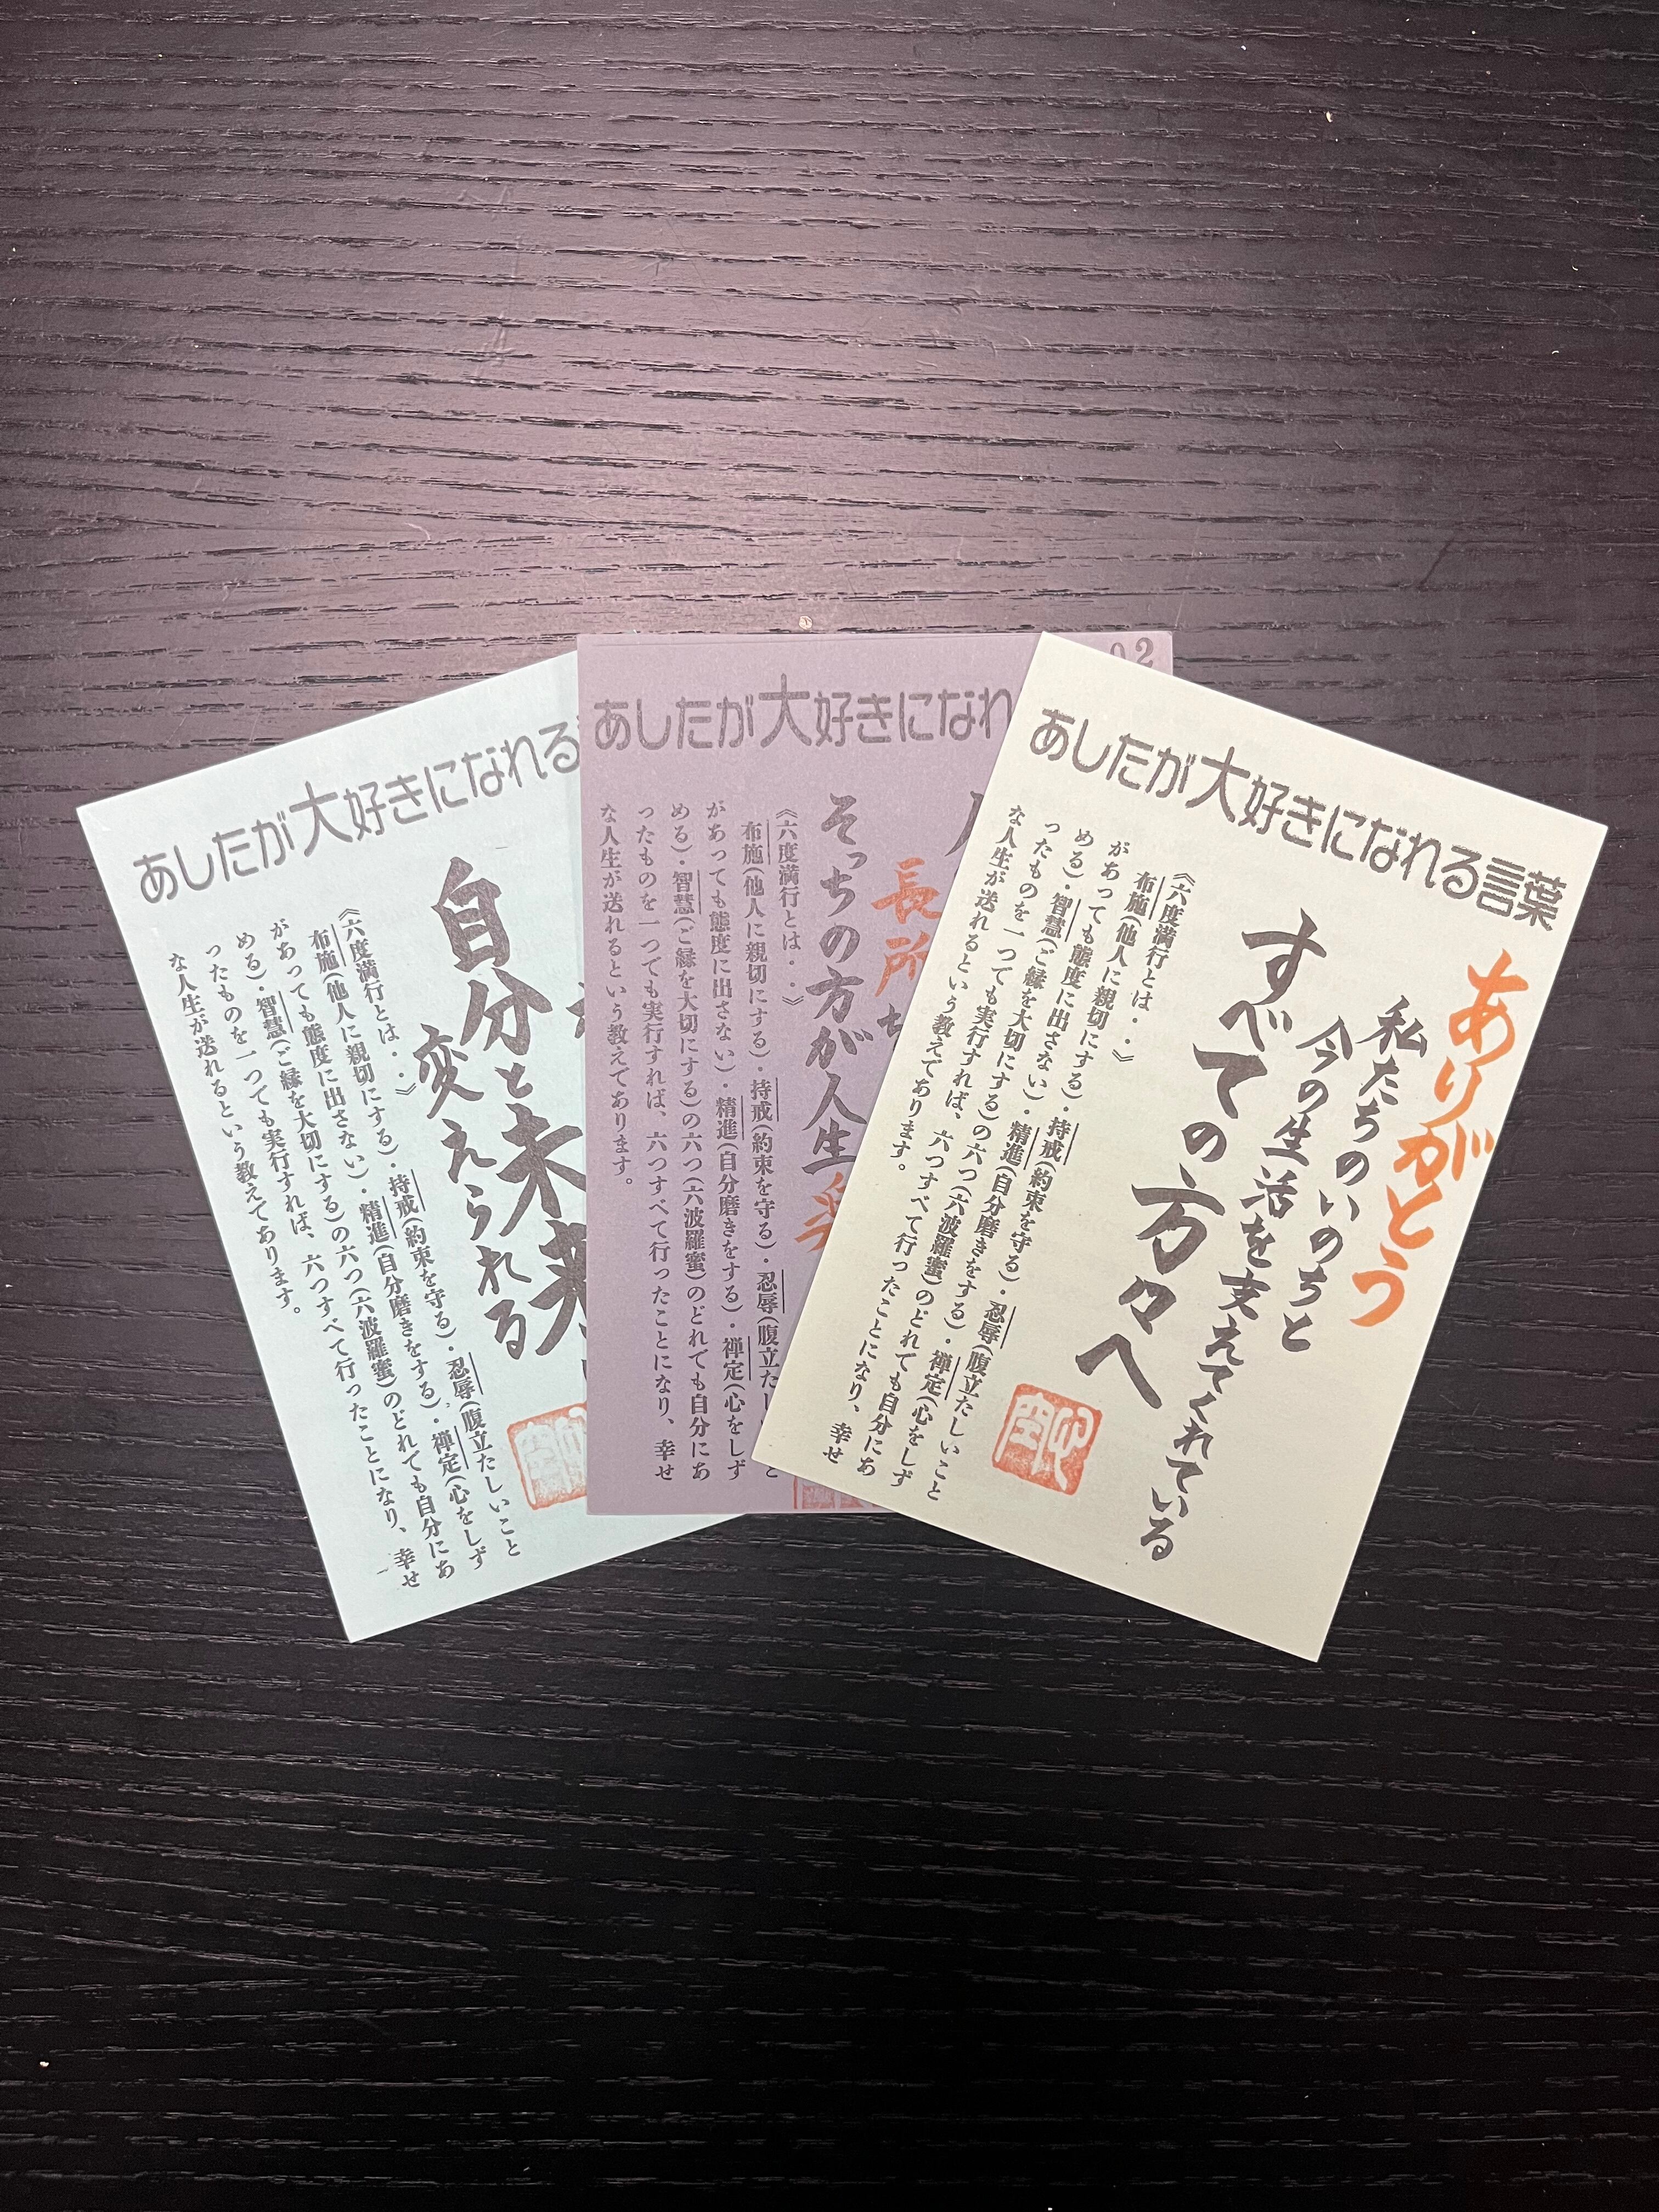 あしたが大好きになれる
自分と未来
変えられる
《六度満行とは・・》
布施(他人に親切にする)・持戒(約束を守る)・忍辱(腹立たしいこと
があっても態度に出さない)・精進(自分磨きをする)・禅定(心をしず
める)・智慧(ご縁を大切にする)の六つ(六波羅蜜)のどれでも自分にあ
ったものを一つでも実行すれば、六つすべて行ったことになり、幸せ
な人生が送れるという教えであります。
02
あしたが大好きになれ
長所
そっちの方が人生
《六度満行とは・・》
布施(他人に親切にする)・持戒(約束を守る)・忍辱(腹立た
があっても態度に出さない)・精進(自分磨きをする)・禅定(心をしず
める)・智慧(ご縁を大切にする)の六つ(六波羅蜜)のどれでも自分にあ
ったものを一つでも実行すれば、六つすべて行ったことになり、幸せ
な人生が送れるという教えであります。
あしたが大好きになれる言葉
ありがとう
私たちのいのちと
今の生活を支えてくれている
すべての方々へ
《六度満行とは・・》
布施(他人に親切にする)・持戒(約束を守る)・忍辱(腹立たしいこと
があっても態度に出さない)・精進(自分磨きをする)・禅定(心をしず
める)・智慧(ご縁を大切にする)の六つ(六波羅蜜)のどれでも自分にあ
ったものを一つでも実行すれば、六つすべて行ったことになり、幸せ
な人生が送れるという教えであります。